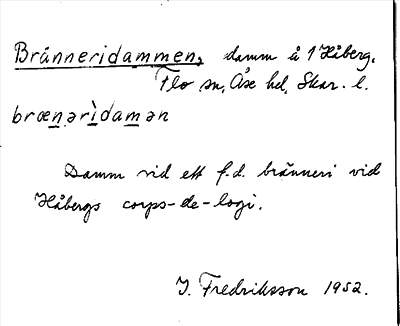 Bränneridammen, damm å 1 Håberg,
Flo sn, Åse hd, Skar. l.
brænərìdamən
Damm vid ett f.d. bränneri vid
Håbergs corps-de-logi.
I. Fredriksson 1952.